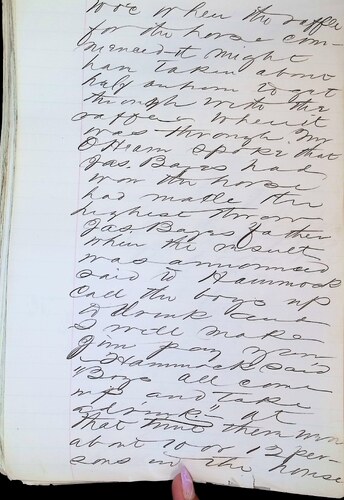 when the raffle
for the horse com-
menced it might
han taken about
half an hour to get
through with the
raffle. When it
was through Mr
O Hearn spoke that
Jas. Bays had
won the horse
had made the
highest throw
Jas. Bays father
when the result
was announced
said to Hammock
call the boys up
to drink and
I will make
Jim pay you
Hammock said
"Boys all come
up and take
a drink." At
that time there was
about 10 or 12 per-
sons in the house